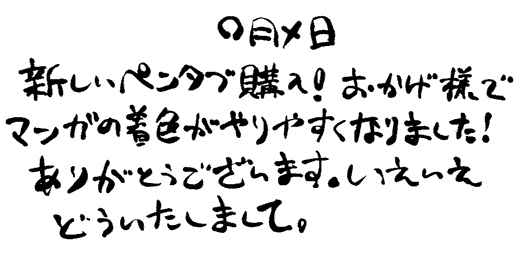 〇月×日
新しいペンタブ購入！おかげ様で
マンガの着色がやりやすくなりました！
ありがとうございます。いえいえ
どういたしまして。